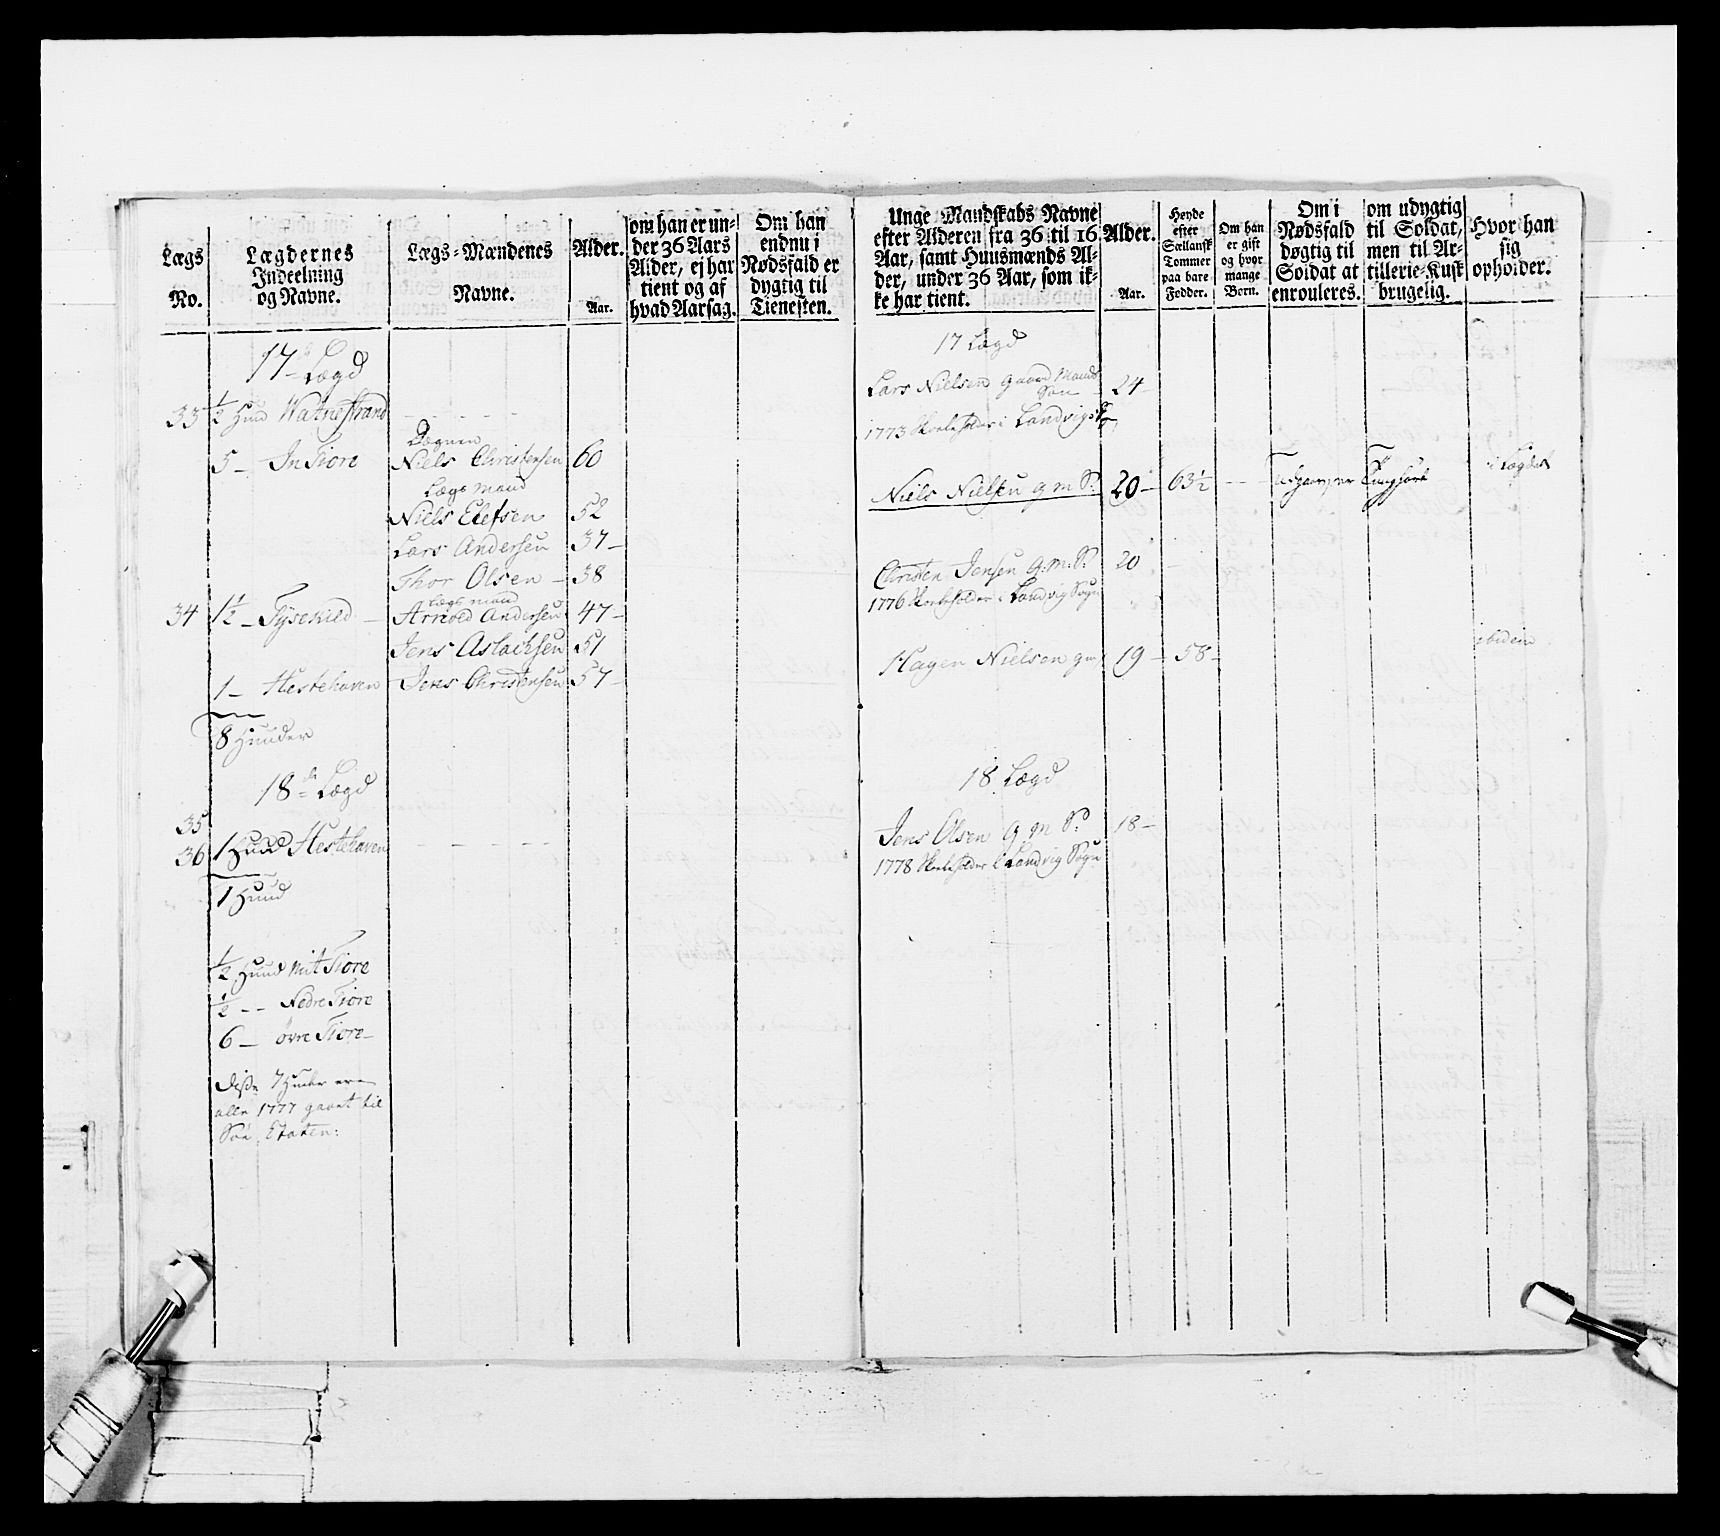 Lægs No.
Lægdernes Indeelning og Navne.
Lægs-Mændenes Navne.
Alder. Aar.
om han er under 36 Aars Alder, ej har tient og af hvad Aarsag.
Om han endnu i Nødsfald er dygtig til Tienesten.
Unge Mandskabs Navne efter Alderen fra 36 til 16 Aar, samt Huusmænds Alder, under 36 Aar, som ikke har tient.
Alder. Aar.
Høyde efter Sællansk Tommer paa bare Fødder.
Om han er gift og hvor mange Børn.
Om i Nødsfald døgtig til Soldat at enrouleres.
om udygtig til Soldat, men til Artillerie-Kusk brugelig.
Hvor han sig opholder.
17 Lægd
33 ½ Huud Watnestrand
Dægnen
5 - In Tiore Niels Christensen 60
Lægs Mand
Niels Elefsen 52
Lars Andersen 37 -
Thor Olsen - 38
Lægs Mand
34 1½ - Tysekild - Arnold Andersen 47 -
Jens Aslachsen 51
1 - Hestehaven Jens Christensen 57 -
8 Huuder
18de Lægd
35
36 1 Huud Hestehaven
1 Huud
½ Huud Mit Tiore
½ - - Nedre Tiore
6 - øvre Tiore -
Disse 7 Huder ere
alle 1777 gaaet til
Søe Etaten:
17 Lægd
Lars Nielsen Gaard Mands 24 -
Søn
1773 i Landvig
Niels Nielsen g m S. 20 - 63½ - - i Lægdet
Christen Jensen G. M. S. 20
1776 i Landvig Sogn
Hagen Nielsen gm 19 - 58 - ibidem
18 Lægd
Jens Olsen G M S. 18 -
1778 i Landvig Sogn